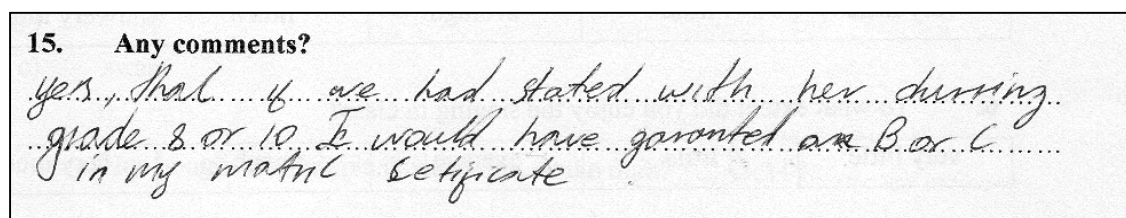 15. Any comments?
yes, that if we had stated with her durring
grade 8 or 10 I would have garanted a B or C
in my matric setificate.